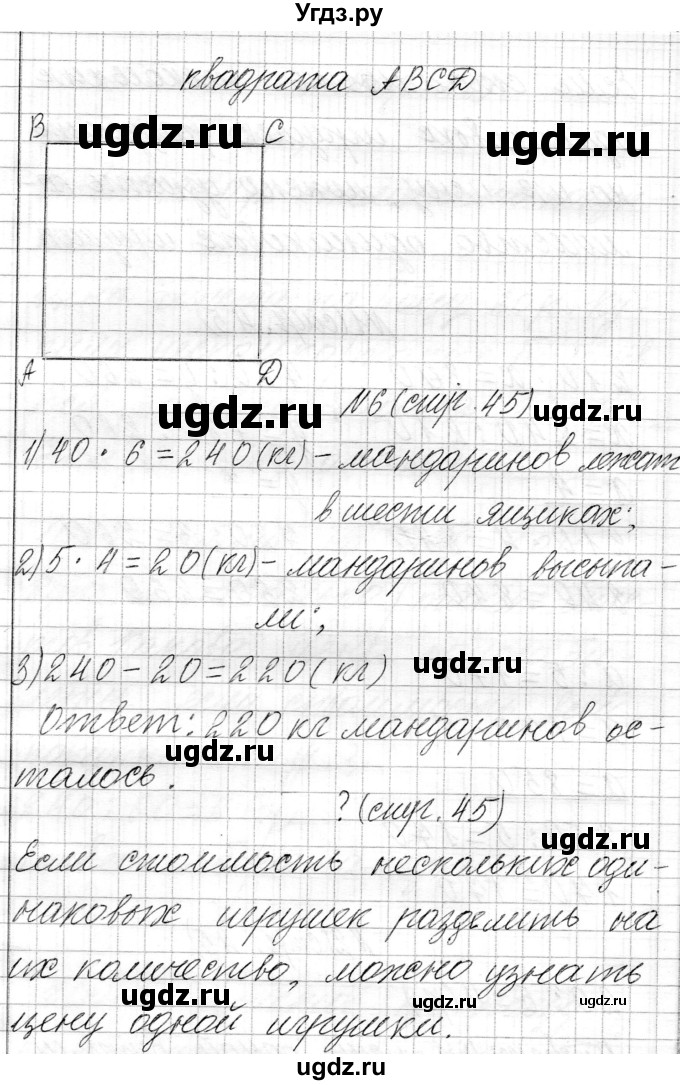 Угдз.ру
квадрата ABCD
B
ugdz.ru
C
ugdz.ru
A
D
ugdz.ru
№6 (стр. 45)
ugdz.ru
1) 40 · 6 = 240 (кг) – мандаринов лежат
в шести ящиках;
2) 5 · 4 = 20 (кг) – мандаринов высыпа-
ли;
3) 240 – 20 = 220 (кг)
ugdz.ru
Ответ: 220 кг мандаринов ос-
ugdz.ru
талось.
? (стр. 45)
ugdz.ru
Если стоимость нескольких оди-
наковых игрушек разделить на
их количество, можно узнать
ugdz.ru
ugdz.ru
цену одной игрушки.
ugdz.ru